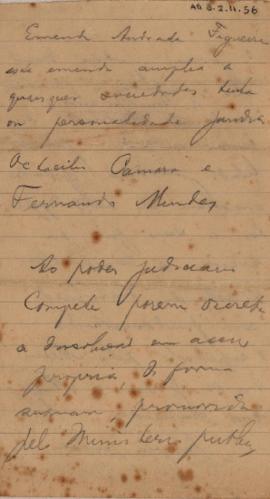 AG 8.2.11.56
Emenda Andrade Figueira
esta emenda amplia a
quaesquer sociedades
ou personalidade juridica
Camara e
Fernando Mendes
Ao poder judiciario
Compete porem decretar
a dissolução em
propria, de forma
promovida
pelo Ministerio publico